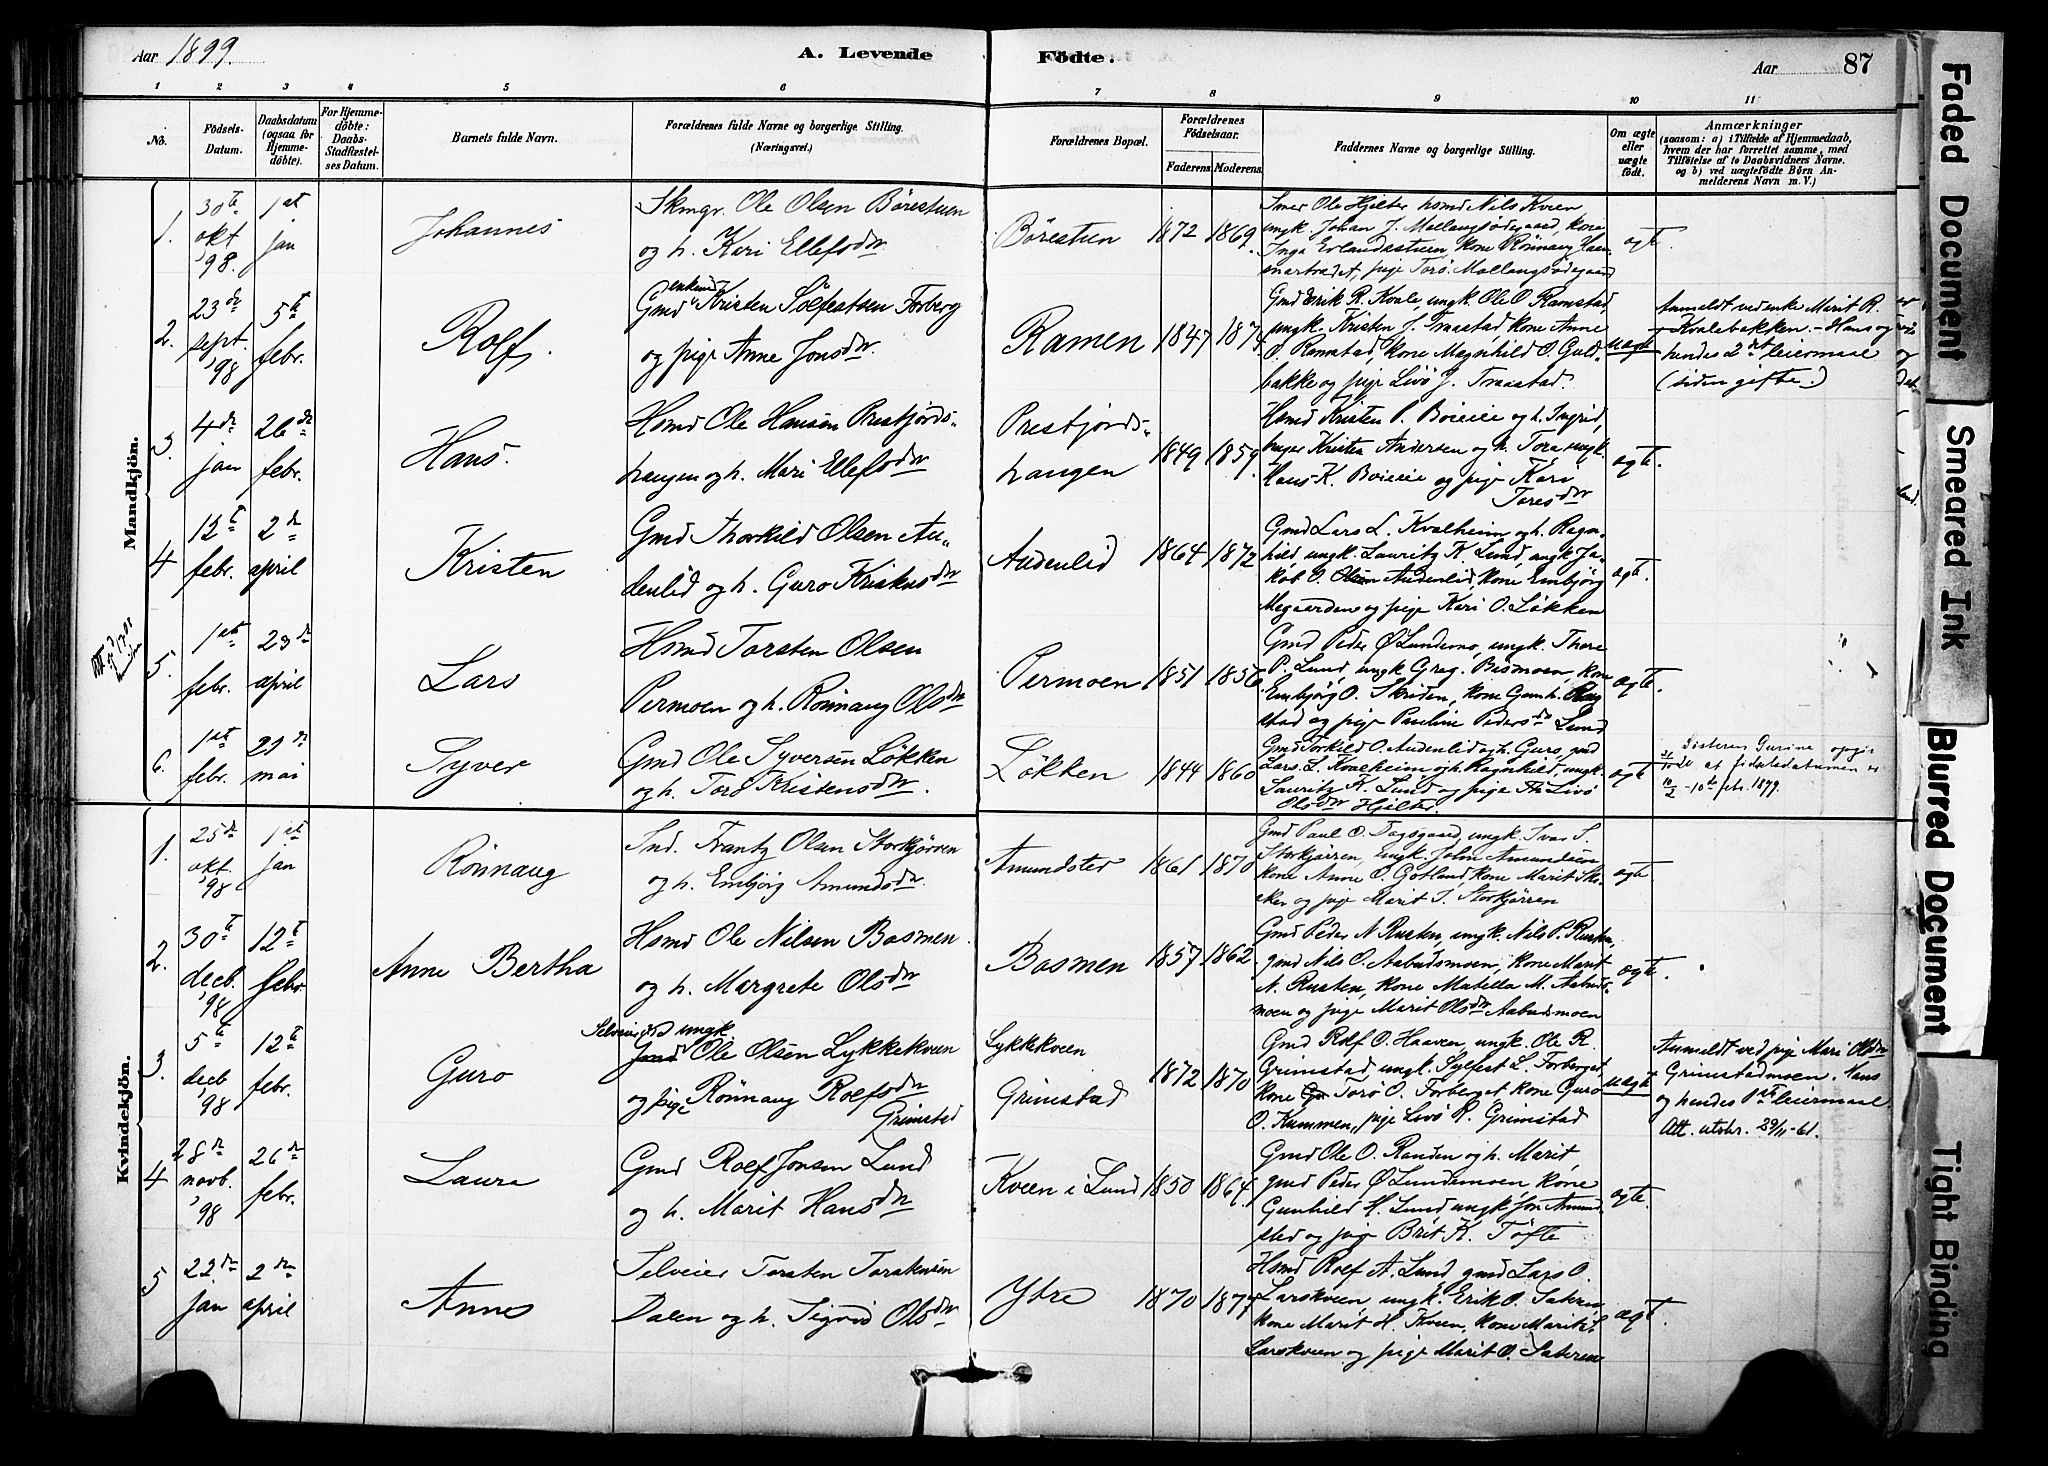 Aar 1899.
A. Levende
Födte.
Aar
87
1 2 3 4 5 6 7 8 9 10 11
No.
Födsels-
Datum.
Daabsdatum
(ogsaa for
Hjemme-
döbte).
For Hjemme-
döbte:
Daabs-
Stadfæstel-
ses Datum.
Barnets fulde Navn.
Forældrenes fulde Navne og borgerlige Stilling.
(Næringsvei.)
Forældrenes Bopæl.
Forældrenes
Födselsaar.
Faderens
Moderens
Faddernes Navne og borgerlige Stilling.
Om ægte
eller
uægte
födt.
Anmærkninger
(saasom: a) i Tilfælde af Hjemmedaab,
hvem der har forrettet samme, med
Tilföielse af to Daabsvidners Navne.
og b) ved uægtefödte Börn An-
melderens Navn m. V.)
Mandkjön.
1.
30te
okt
'98.
1st
jan
Johannes
Skmgr. Ole Olsen Börestuen
og h. Kari Ellefsdtr.
Börestuen
1872
1869.
Smed Ole Hjelter, hsmd Nils Kveen
ungk. Johan J. Mollangsödegaard, kone
Inga Erlandsstuen, kone Rönnaug
pige Torö Mollangsödegaard
ægt.
2.
23de
sept.
'98
5te
febr.
Rolf.
enkemd
Gmd Kristen Sölfestsen Forberg
og pige Anne Jonsdtr.
Ramen
1847
1874
Gmd Erik R. Kvale, ungk. Ole O. Ramstad,
ungk. Kristen J. Traastad, kone Anne
O. Ramstad, kone Magnhild O. Guld-
bakke og pige Livö J. Traastad.
uægt
Anmeldt ved enke Marit R.
Kvalebakken. – Hans og
hendes 2det leiermaal
(siden gifte.)
3.
4de
jan
26de
febr.
Hans.
Hsmd Ole Hansen Prestjords-
haugen og h. Mari Ellefsdtr
Prestjords-
haugen
1849
1859.
Hsmd Kristen P. Boieie og h. Ingrid,
Kristen Andersen og h. Tora, ungk.
Hans K. Boieie og pige Kari
Toresdtr
ægt.
4
12te
febr.
2de
april
Kristen
Gmd Thorkild Olsen Au-
denlid og h. Guro Kristensdtr
Audenlid
1864
1872
Gmd Lars L. Kvalheim og h. Ragn-
hild, ungk. Lauritz K. Lund, ungk Ja-
kob O. Olsen Audenlid, kone Embjörg
Megaarden og pige Kari O. Lökken
ægt.
5.
1ste
febr.
23de
april
Lars
Hsmd Torsten Olsen
Permoen og h. Rönnaug Olsdtr
Permoen
1851
1856
Gmd Peder Ø Lundemo, ungk. Thore
P. Lund, ungk Greg. Besmoen, kone
Embjörg O. Skriden, kone Gunh.
stad og pige Pauline Pedersdtr Lund
ægt.
6.
1ste
febr.
29de
mai
Syver
Gmd Ole Syversen Lökken
og h. Torö Kristensdtr.
Lökken
1844
1860
Gmd Torkild O. Audenlid og h. Guro, gmd
Lars L. Kvalheim og h. Ragnhild, ungk.
Lauritz K. Lund og pige Livö
Olsdtr Hjelter.
ægt
Söstren Gurine opgir
at födselsdatumen er
10/2 – 10de febr. 1899.
Kvindekjön.
1.
25de
okt.
'98
1st
jan
Rönnaug
Ind. Frantz Olsen Storkjörren
og h. Embjörg Amundsdtr.
Amundsler
1861
1870
Gmd Paul O. Fagsgaard, ungk. Ivar S.
Storkjörren, ungk. John Amundsen,
kone Anne O. Götland, kone Marit
og pige Marit I. Storkjörren
ægt
2.
30te
decb.
'98
12te
febr
Anne Bertha
Hsmd Ole Nilsen Basmen
og h. Margrete Olsdtr
Basmen
1857
1862
Gmd Peder N Rusten, ungk. Nils P. Rusten,
gmd Nils O. Aabudsmoen, kone Marit
N. Rusten, kone Matilla M. Aabuds-
moen og pige Marit Olsdtr Aabudsmoen
ægt.
3.
5te
decb
'98
12te
febr.
Guro
Selveier ungk
Gmd Ole Olsen Lykkekveen
og pige Rönnaug Rolfsdtr
Grimstad
Lykkekveen
Grimstad
1872
1870
Gmd Rolf O. Haaven, ungk. Ole R.
Grimstad, ungk. Sylfest L. Forberget,
kone Torö O. Forberget, kone Guro
O. Kummen, pige Livö R. Grimstad
uægt
Anmeldt ved pige Mari Olsdtr
Grimstadmoen. Hans
og hendes 1ste leiermaal.
Att. utskr. 29/11-61.
4
28de
novb.
'98
26de
febr.
Laura
Gmd Rolf Jonsen Lund
og h. Marit Hansdtr
Kveen i Lund
1850
1864
Gmd Ole O. Randen og h. Marit,
gmd Peder Ø Lundemoen, kone
Gunhild H. Lund, ungk Jon Amund-
sled og pige Brit K. Tofte
ægte.
5
22de
jan
2den
april
Anne
Selveier Torsten Torstensen
Dalen og h. Sigrid Olsdtr
Ytre
1870
1877
Hsmd Rolf A. Lund, gmd Lars O.
Larskveen, ungk. Erik O. Sateren,
kone Marit H. Kveen, kone Marit L
Larskveen og pige Marit O. Sateren
ægt.
Faded Document
Smeared Ink
Blurred Document
Tight Binding